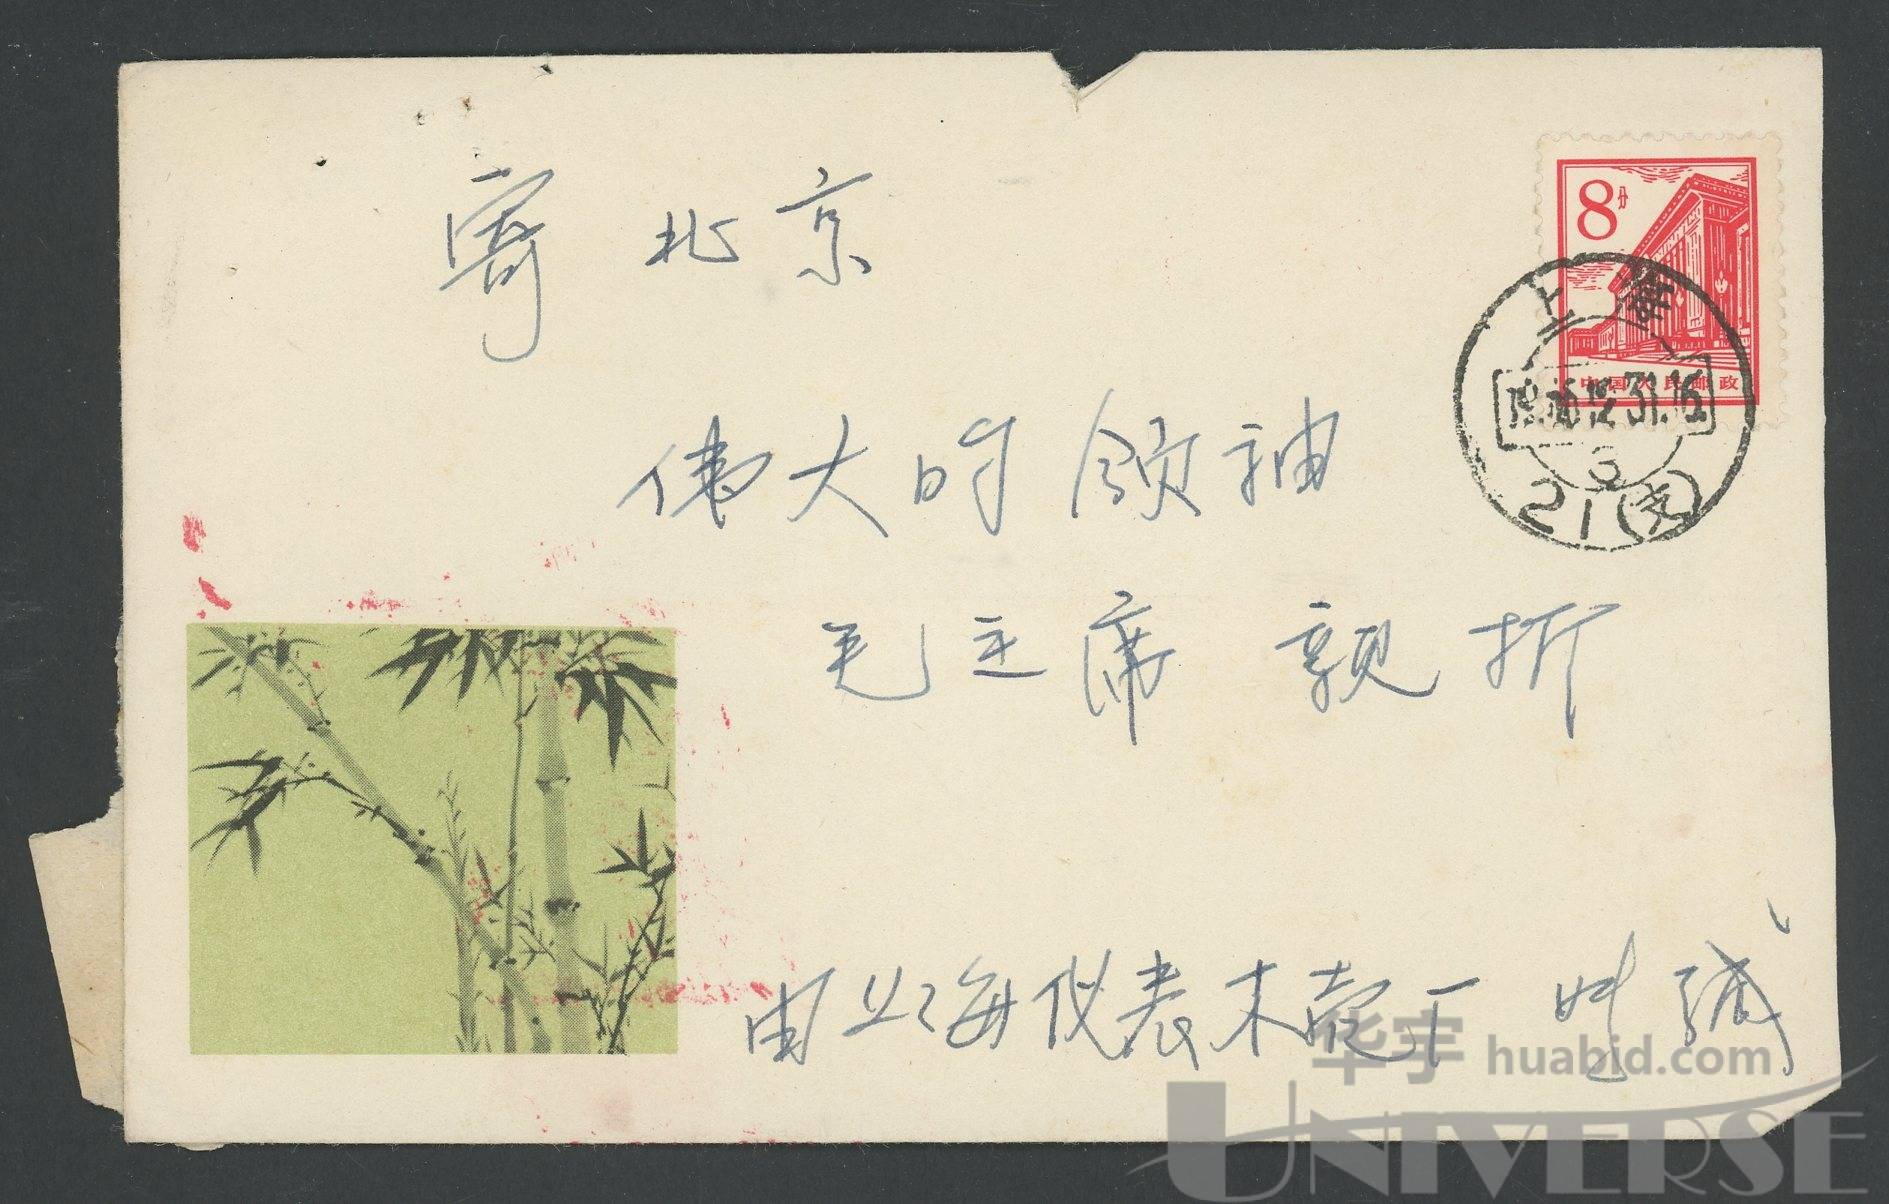 寄 北京
8分
上海
1966.12.31.16
3
21(支)
中国人民邮政
伟大的领袖
毛主席 亲折
由上海仪表木壳厂 缄
华宇 huabid.com
UNIVERSE